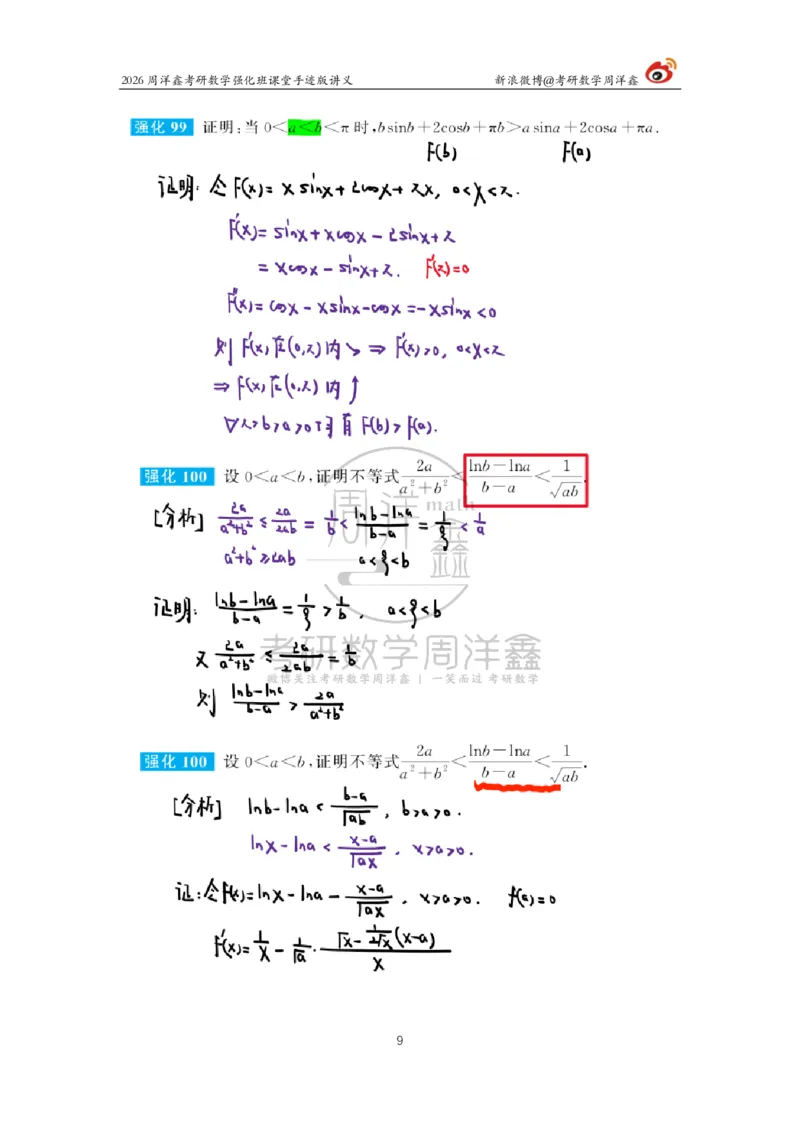 2026周洋鑫考研数学强化班课堂手迹版讲义 新浪微博@考研数学周洋鑫
强化 99 证明:当 0<a<b<π 时,bsinb+2cosb+πb>asina+2cosa+πa.
F(b) F(a)
证明: 令 F(x)= x sinx+2cosx+πx, 0<x<π.
F'(x)= sinx+xcosx-2sinx+π
= xcosx-sinx+π. F'(π)=0
F''(x)= cosx-xsinx-cosx=-xsinx<0
则 F'(x)在(0,π)内↘ ⇒ F'(x)>0, 0<x<π
⇒ F(x)在(0,π)内↑
∀π>b>a>0时有 F(b)>F(a).
强化 100 设 0<a<b,证明不等式 2a/(a²+b²) < (lnb-lna)/(b-a) < 1/√(ab).
[分析] 2a/(a²+b²) ≤ 2a/(2ab) = 1/b < (lnb-lna)/(b-a) = 1/ξ < 1/a
a²+b²≥2ab a<ξ<b
周洋鑫 math
证明: (lnb-lna)/(b-a) = 1/ξ > 1/b, a<ξ<b
又 2a/(a²+b²) ≤ 2a/(2ab) = 1/b
考研数学周洋鑫
微博关注考研数学周洋鑫 | 一笑而过 考研数学
则 (lnb-lna)/(b-a) > 2a/(a²+b²)
强化 100 设 0<a<b,证明不等式 2a/(a²+b²) < (lnb-lna)/(b-a) < 1/√(ab).
[分析] lnb-lna < (b-a)/√(ab), b>a>0.
lnx-lna < (x-a)/√(ax), x>a>0.
证:令f(x)=lnx-lna-(x-a)/√(ax), x>a>0. f(a)=0
f'(x)= 1/x - 1/√a · (√x - 1/(2√x)(x-a))/x
9